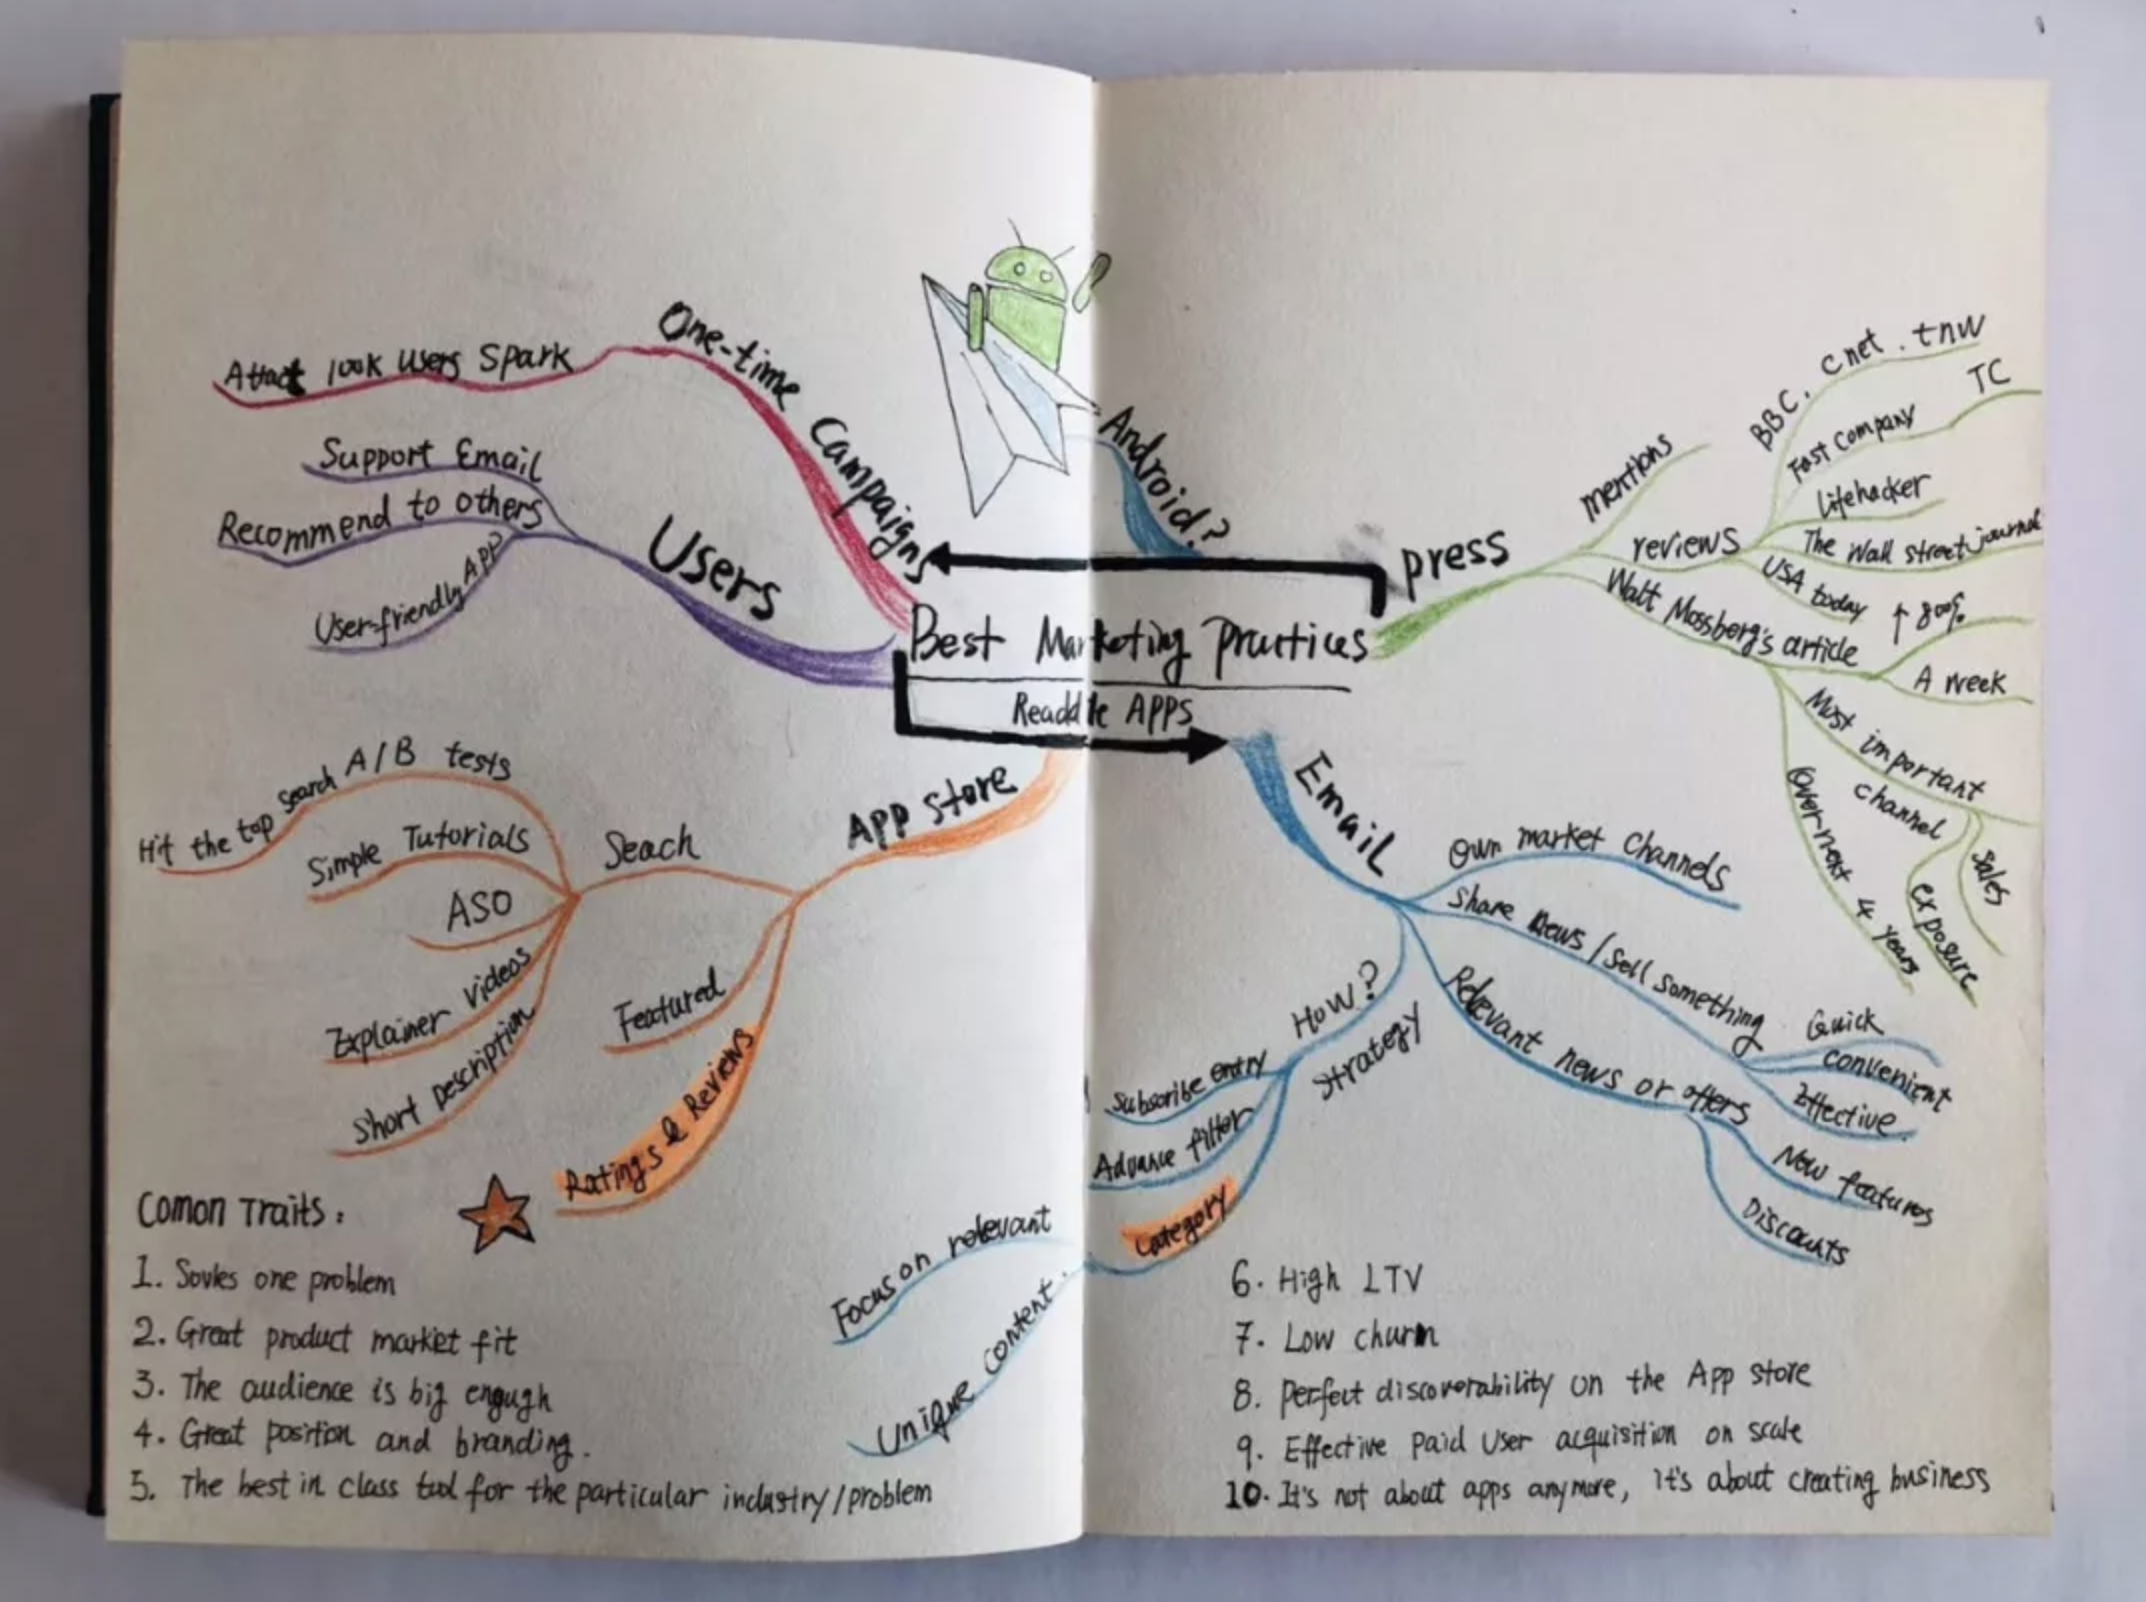 One-time Campaigns
Attact 100k users Spark
Users
Support Email
Recommend to others
User-friendly App
Android?
Best Marketing practices
Readdle APPS
press
mentions
reviews
BBC. Cnet. tnw
Fast Company
TC
Lifehacker
The Wall street journal
USA today
Walt Mossberg's article
↑ 80%
A week
Most important
channel
Sales
exposure
Over next 4 years
App store
Seach
A/B tests
Hit the top search
Simple Tutorials
ASO
Explainer videos
Short Description
Featured
Ratings & Reviews
Email
Own market Channels
Share News / Sell something
Quick
convenient
Effective.
Relevant news or offers
New features
Discounts
How?
Strategy
Subscribe entry
Advance filter
Category
Focus on relevant
Unique content.
Comon Traits:
1. Sovles one problem
2. Great product market fit
3. The audience is big engugh
4. Great position and branding.
5. The best in class tool for the particular industry/problem
6. High LTV
7. Low churn
8. perfect discoverability on the App store
9. Effective Paid User acquisition on scale
10. It's not about apps anymore, it's about creating business